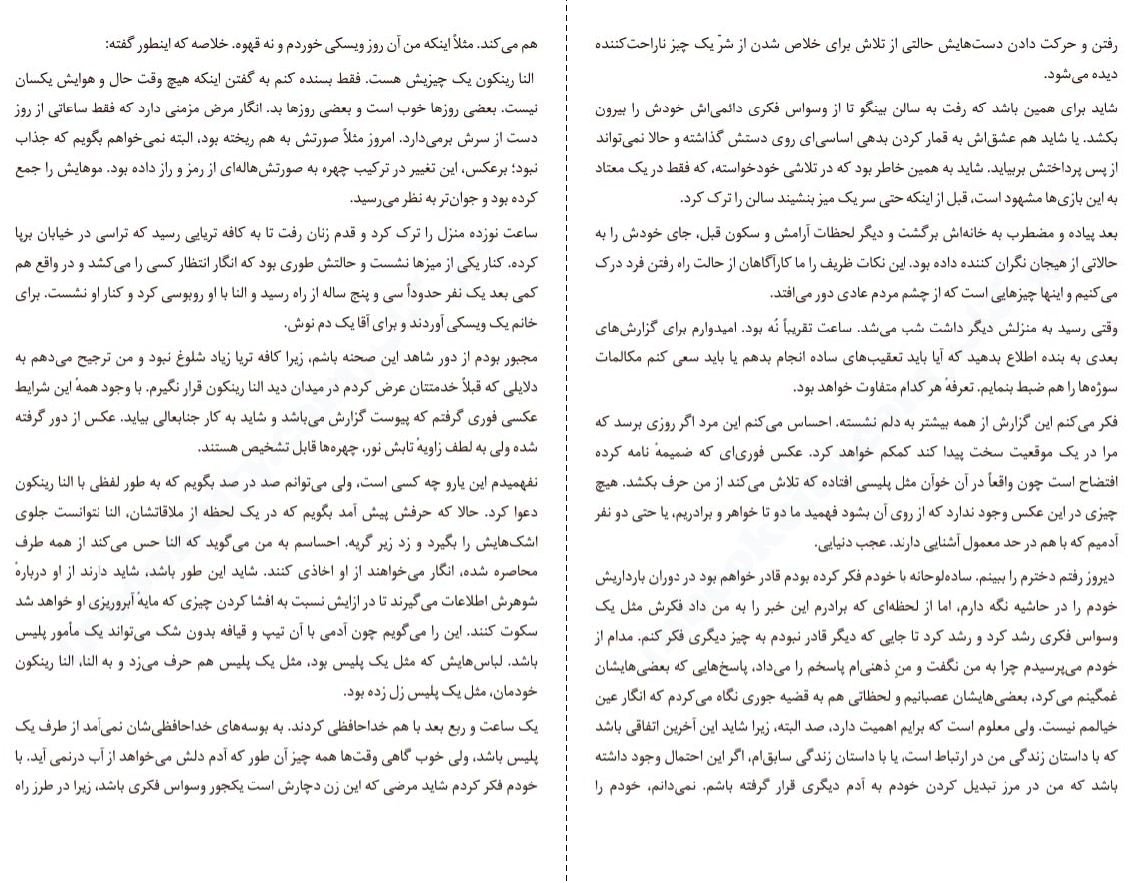 هم می‌کند. مثلاً اینکه من آن روز ویسکی خوردم و نه قهوه. خلاصه که اینطور گفته:
النا رینکون یک چیزیش هست. فقط بسنده کنم به گفتن اینکه هیچ وقت حال و هوایش یکسان
نیست. بعضی روزها خوب است و بعضی روزها بد. انگار مرض مزمنی دارد که فقط ساعاتی از روز
دست از سرش برمی‌دارد. امروز مثلاً صورتش به هم ریخته بود، البته نمی‌خواهم بگویم که جذاب
نبود؛ برعکس، این تغییر در ترکیب چهره به صورتش‌هاله‌ای از رمز و راز داده بود. موهایش را جمع
کرده بود و جوان‌تر به نظر می‌رسید.
ساعت نوزده منزل را ترک کرد و قدم زنان رفت تا به کافه تریایی رسید که تراسی در خیابان برپا
کرده. کنار یکی از میزها نشست و حالتش طوری بود که انگار انتظار کسی را می‌کشد و در واقع هم
کمی بعد یک نفر حدوداً سی و پنج ساله از راه رسید و النا با او روبوسی کرد و کنار او نشست. برای
خانم یک ویسکی آوردند و برای آقا یک دم نوش.
مجبور بودم از دور شاهد این صحنه باشم، زیرا کافه تریا زیاد شلوغ نبود و من ترجیح می‌دهم به
دلایلی که قبلاً خدمتتان عرض کردم در میدان دید النا رینکون قرار نگیرم. با وجود همهٔ این شرایط
عکسی فوری گرفتم که پیوست گزارش می‌باشد و شاید به کار جنابعالی بیاید. عکس از دور گرفته
شده ولی به لطف زاویهٔ تابش نور، چهره‌ها قابل تشخیص هستند.
نفهمیدم این یارو چه کسی است، ولی می‌توانم صد در صد بگویم که به طور لفظی با النا رینکون
دعوا کرد. حالا که حرفش پیش آمد بگویم که در یک لحظه از ملاقاتشان، النا نتوانست جلوی
اشک‌هایش را بگیرد و زد زیر گریه. احساسم به من می‌گوید که النا حس می‌کند از همه طرف
محاصره شده، انگار می‌خواهند از او اخاذی کنند. شاید این طور باشد، شاید دارند از او دربارهٔ
شوهرش اطلاعات می‌گیرند تا در ازایش نسبت به افشا کردن چیزی که مایهٔ آبروریزی او خواهد شد
سکوت کنند. این را می‌گویم چون آدمی با آن تیپ و قیافه بدون شک می‌تواند یک مأمور پلیس
باشد. لباس‌هایش که مثل یک پلیس بود، مثل یک پلیس هم حرف می‌زد و به النا، النا رینکون
خودمان، مثل یک پلیس زل زده بود.
یک ساعت و ربع بعد با هم خداحافظی کردند. به بوسه‌های خداحافظی‌شان نمی‌آمد از طرف یک
پلیس باشد، ولی خوب گاهی وقت‌ها همه چیز آن طور که آدم دلش می‌خواهد از آب درنمی آید. با
خودم فکر کردم شاید مرضی که این زن دچارش است یکجور وسواس فکری باشد، زیرا در طرز راه
رفتن و حرکت دادن دست‌هایش حالتی از تلاش برای خلاص شدن از شرّ یک چیز ناراحت‌کننده
دیده می‌شود.
شاید برای همین باشد که رفت به سالن بینگو تا از وسواس فکری دائمی‌اش خودش را بیرون
بکشد. یا شاید هم عشق‌اش به قمار کردن بدهی اساسی‌ای روی دستش گذاشته و حالا نمی‌تواند
از پس پرداختش بربیاید. شاید به همین خاطر بود که در تلاشی خودخواسته، که فقط در یک معتاد
به این بازی‌ها مشهود است، قبل از اینکه حتی سر یک میز بنشیند سالن را ترک کرد.
بعد پیاده و مضطرب به خانه‌اش برگشت و دیگر لحظات آرامش و سکون قبل، جای خودش را به
حالاتی از هیجان نگران کننده داده بود. این نکات ظریف را ما کارآگاهان از حالت راه رفتن فرد درک
می‌کنیم و اینها چیزهایی است که از چشم مردم عادی دور می‌افتد.
وقتی رسید به منزلش دیگر داشت شب می‌شد. ساعت تقریباً نُه بود. امیدوارم برای گزارش‌های
بعدی به بنده اطلاع بدهید که آیا باید تعقیب‌های ساده انجام بدهم یا باید سعی کنم مکالمات
سوژه‌ها را هم ضبط بنمایم. تعرفهٔ هر کدام متفاوت خواهد بود.
فکر می‌کنم این گزارش از همه بیشتر به دلم نشسته. احساس می‌کنم این مرد اگر روزی برسد که
مرا در یک موقعیت سخت پیدا کند کمکم خواهد کرد. عکس فوری‌ای که ضمیمهٔ نامه کرده
افتضاح است چون واقعاً در آن خوآن مثل پلیسی افتاده که تلاش می‌کند از من حرف بکشد. هیچ
چیزی در این عکس وجود ندارد که از روی آن بشود فهمید ما دو تا خواهر و برادریم، یا حتی دو نفر
آدمیم که با هم در حد معمول آشنایی دارند. عجب دنیایی.
دیروز رفتم دخترم را ببینم. ساده‌لوحانه با خودم فکر کرده بودم قادر خواهم بود در دوران بارداریش
خودم را در حاشیه نگه دارم، اما از لحظه‌ای که برادرم این خبر را به من داد فکرش مثل یک
وسواس فکری رشد کرد و رشد کرد تا جایی که دیگر قادر نبودم به چیز دیگری فکر کنم. مدام از
خودم می‌پرسیدم چرا به من نگفت و منِ ذهنی‌ام پاسخم را می‌داد، پاسخ‌هایی که بعضی‌هایشان
غمگینم می‌کرد، بعضی‌هایشان عصبانیم و لحظاتی هم به قضیه جوری نگاه می‌کردم که انگار عین
خیالم نیست. ولی معلوم است که برایم اهمیت دارد، صد البته، زیرا شاید این آخرین اتفاقی باشد
که با داستان زندگی من در ارتباط است، یا با داستان زندگی سابق‌ام، اگر این احتمال وجود داشته
باشد که من در مرز تبدیل کردن خودم به آدم دیگری قرار گرفته باشم. نمی‌دانم، خودم را